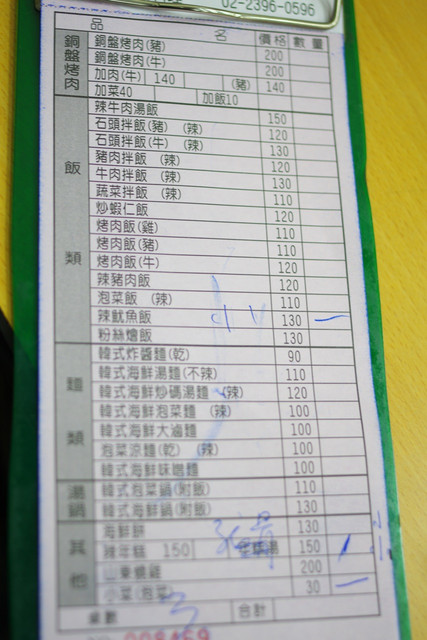 02-2396-0596
品 名 價格 數量
銅盤烤肉
銅盤烤肉(豬) 200
銅盤烤肉(牛) 200
加肉(牛) 140 (豬) 140
加菜40 加飯10
飯類
辣牛肉湯飯 150
石頭拌飯(豬) (辣) 120
石頭拌飯(牛) (辣) 130
豬肉拌飯 (辣) 120
牛肉拌飯 (辣) 130
蔬菜拌飯 (辣) 110
炒蝦仁飯 120
烤肉飯(雞) 110
烤肉飯(豬) 110
烤肉飯(牛) 120
辣豬肉飯 120
泡菜飯 (辣) 110
辣魷魚飯 小 130 一
粉絲燴飯 130
麵類
韓式炸醬麵(乾) 90
韓式海鮮湯麵(不辣) 110
韓式海鮮炒碼湯麵 (辣) 120
韓式海鮮泡菜麵 (辣) 100
韓式海鮮大滷麵 100
泡菜涼麵(乾) (辣) 100
韓式海鮮味噌麵 100
湯鍋
韓式泡菜鍋(附飯) 110
韓式海鮮鍋(附飯) 130
其他
海鮮餅 130
辣年糕 150 150
山東燒雞 200
小菜(泡菜) 30 一
桌數 3 合計